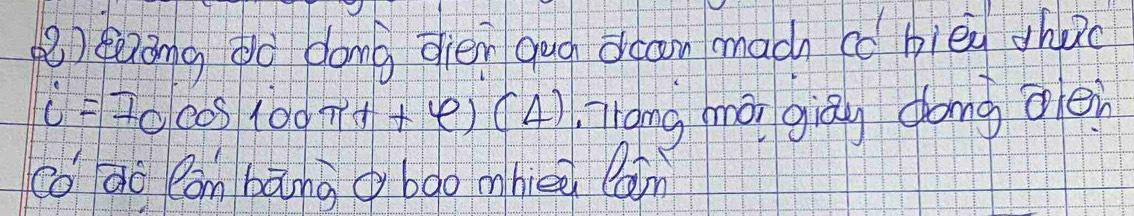 2) Cường độ dòng điện qua đoạn mạch có biểu thức
i = I0 cos 100πt + φ) (A). Trong mỗi giây dòng điện
có độ lớn bằng 0 bao nhiêu lần